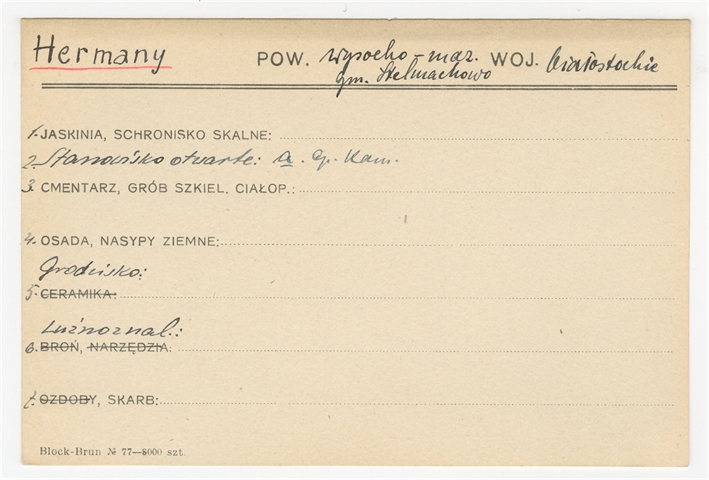 Hermany POW. wysocko-maz. WOJ. białostockie
gm. Stelmachowo
1. JASKINIA, SCHRONISKO SKALNE:
2. Stanowisko otwarte: a. ep. kam.
3. CMENTARZ, GRÓB SZKIEL, CIAŁOP.:
4. OSADA, NASYPY ZIEMNE:
Grodzisko:
5. CERAMIKA:
Luźno znal.:
6. BROŃ, NARZĘDZIA:
7. OZDOBY, SKARB:
Block-Brun № 77—8000 szt.